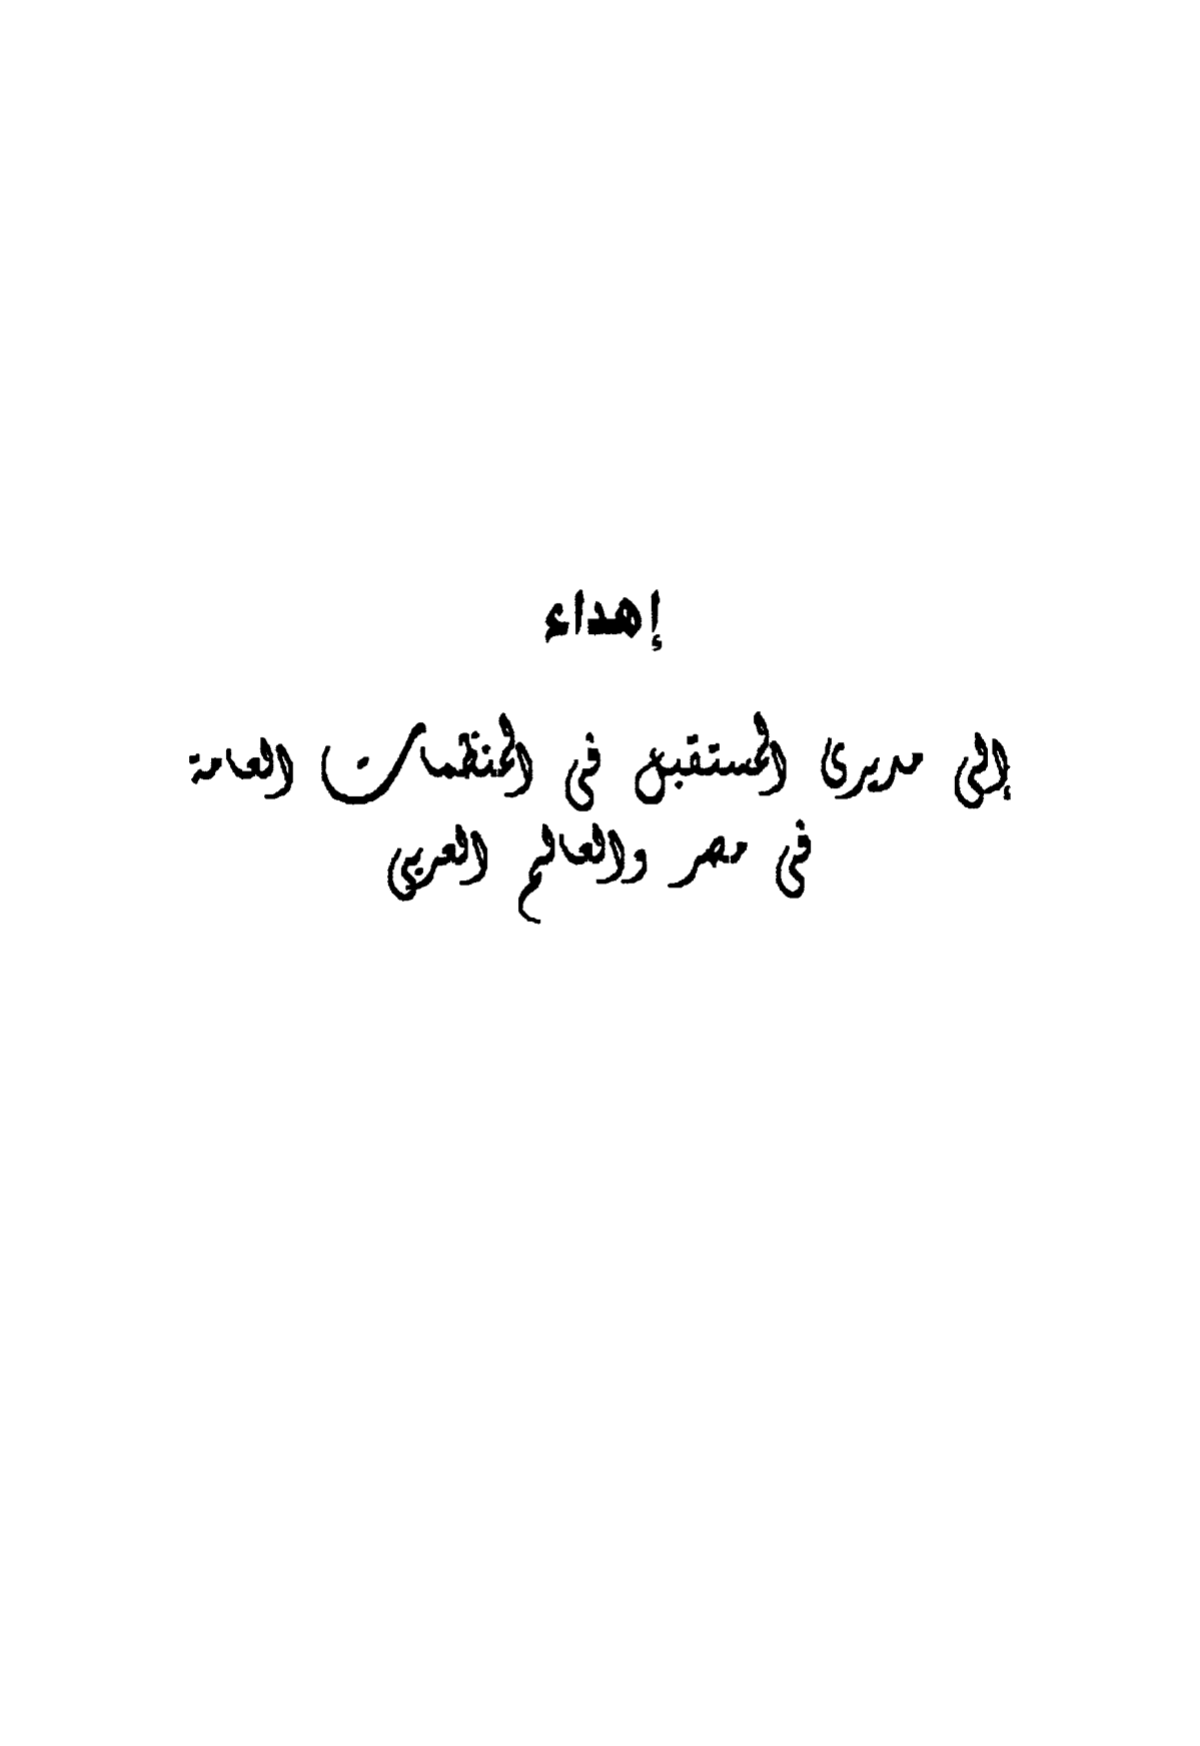 إهداء
إلى مديرى المستقبل فى المنظمات العامة
فى مصر والعالم العربى